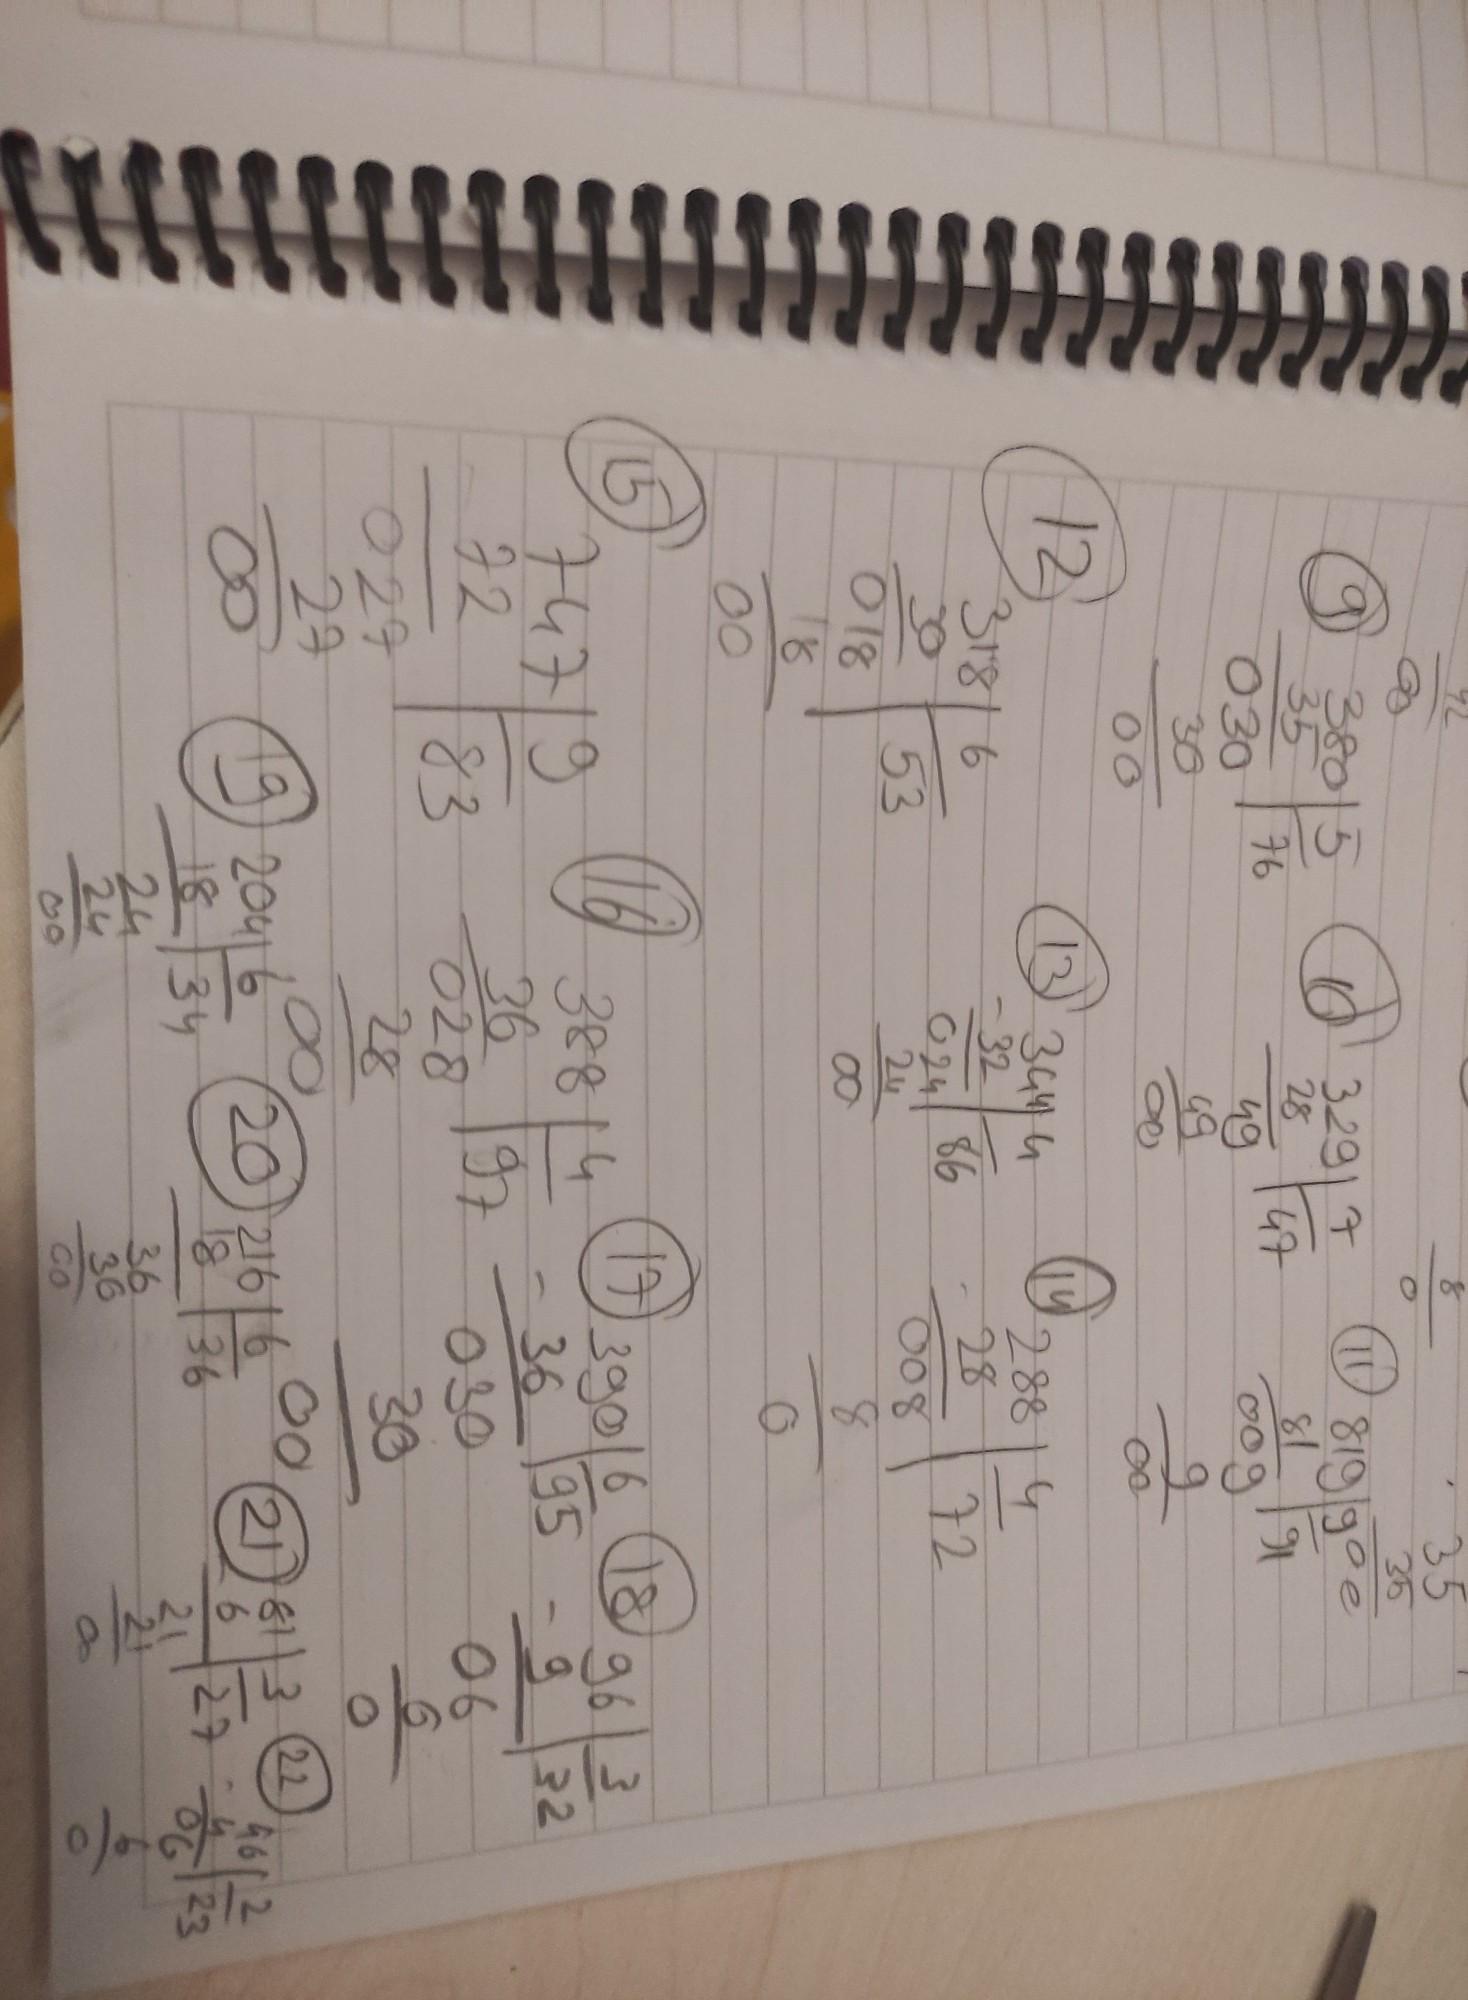 42
00
8
0
35
35
00
9 380 5
35 76
030
30
00
10 329 7
28 47
49
49
00
11 819 9
81 91
009
9
00
12
318 6
30 53
018
18
00
13
344 4
-32 86
024
24
00
14
288 4
-28 72
008
8
0
15
747 9
72 83
027
27
00
16
388 4
36 97
028
28
00
17
390 6
-36 95
030
30
00
18
96 3
-9 32
06
6
0
19 204 6
18 34
24
24
00
20 216 6
18 36
36
36
00
21 81 3
6 27
21
21
00
22 46 2
-4 23
06
6
0